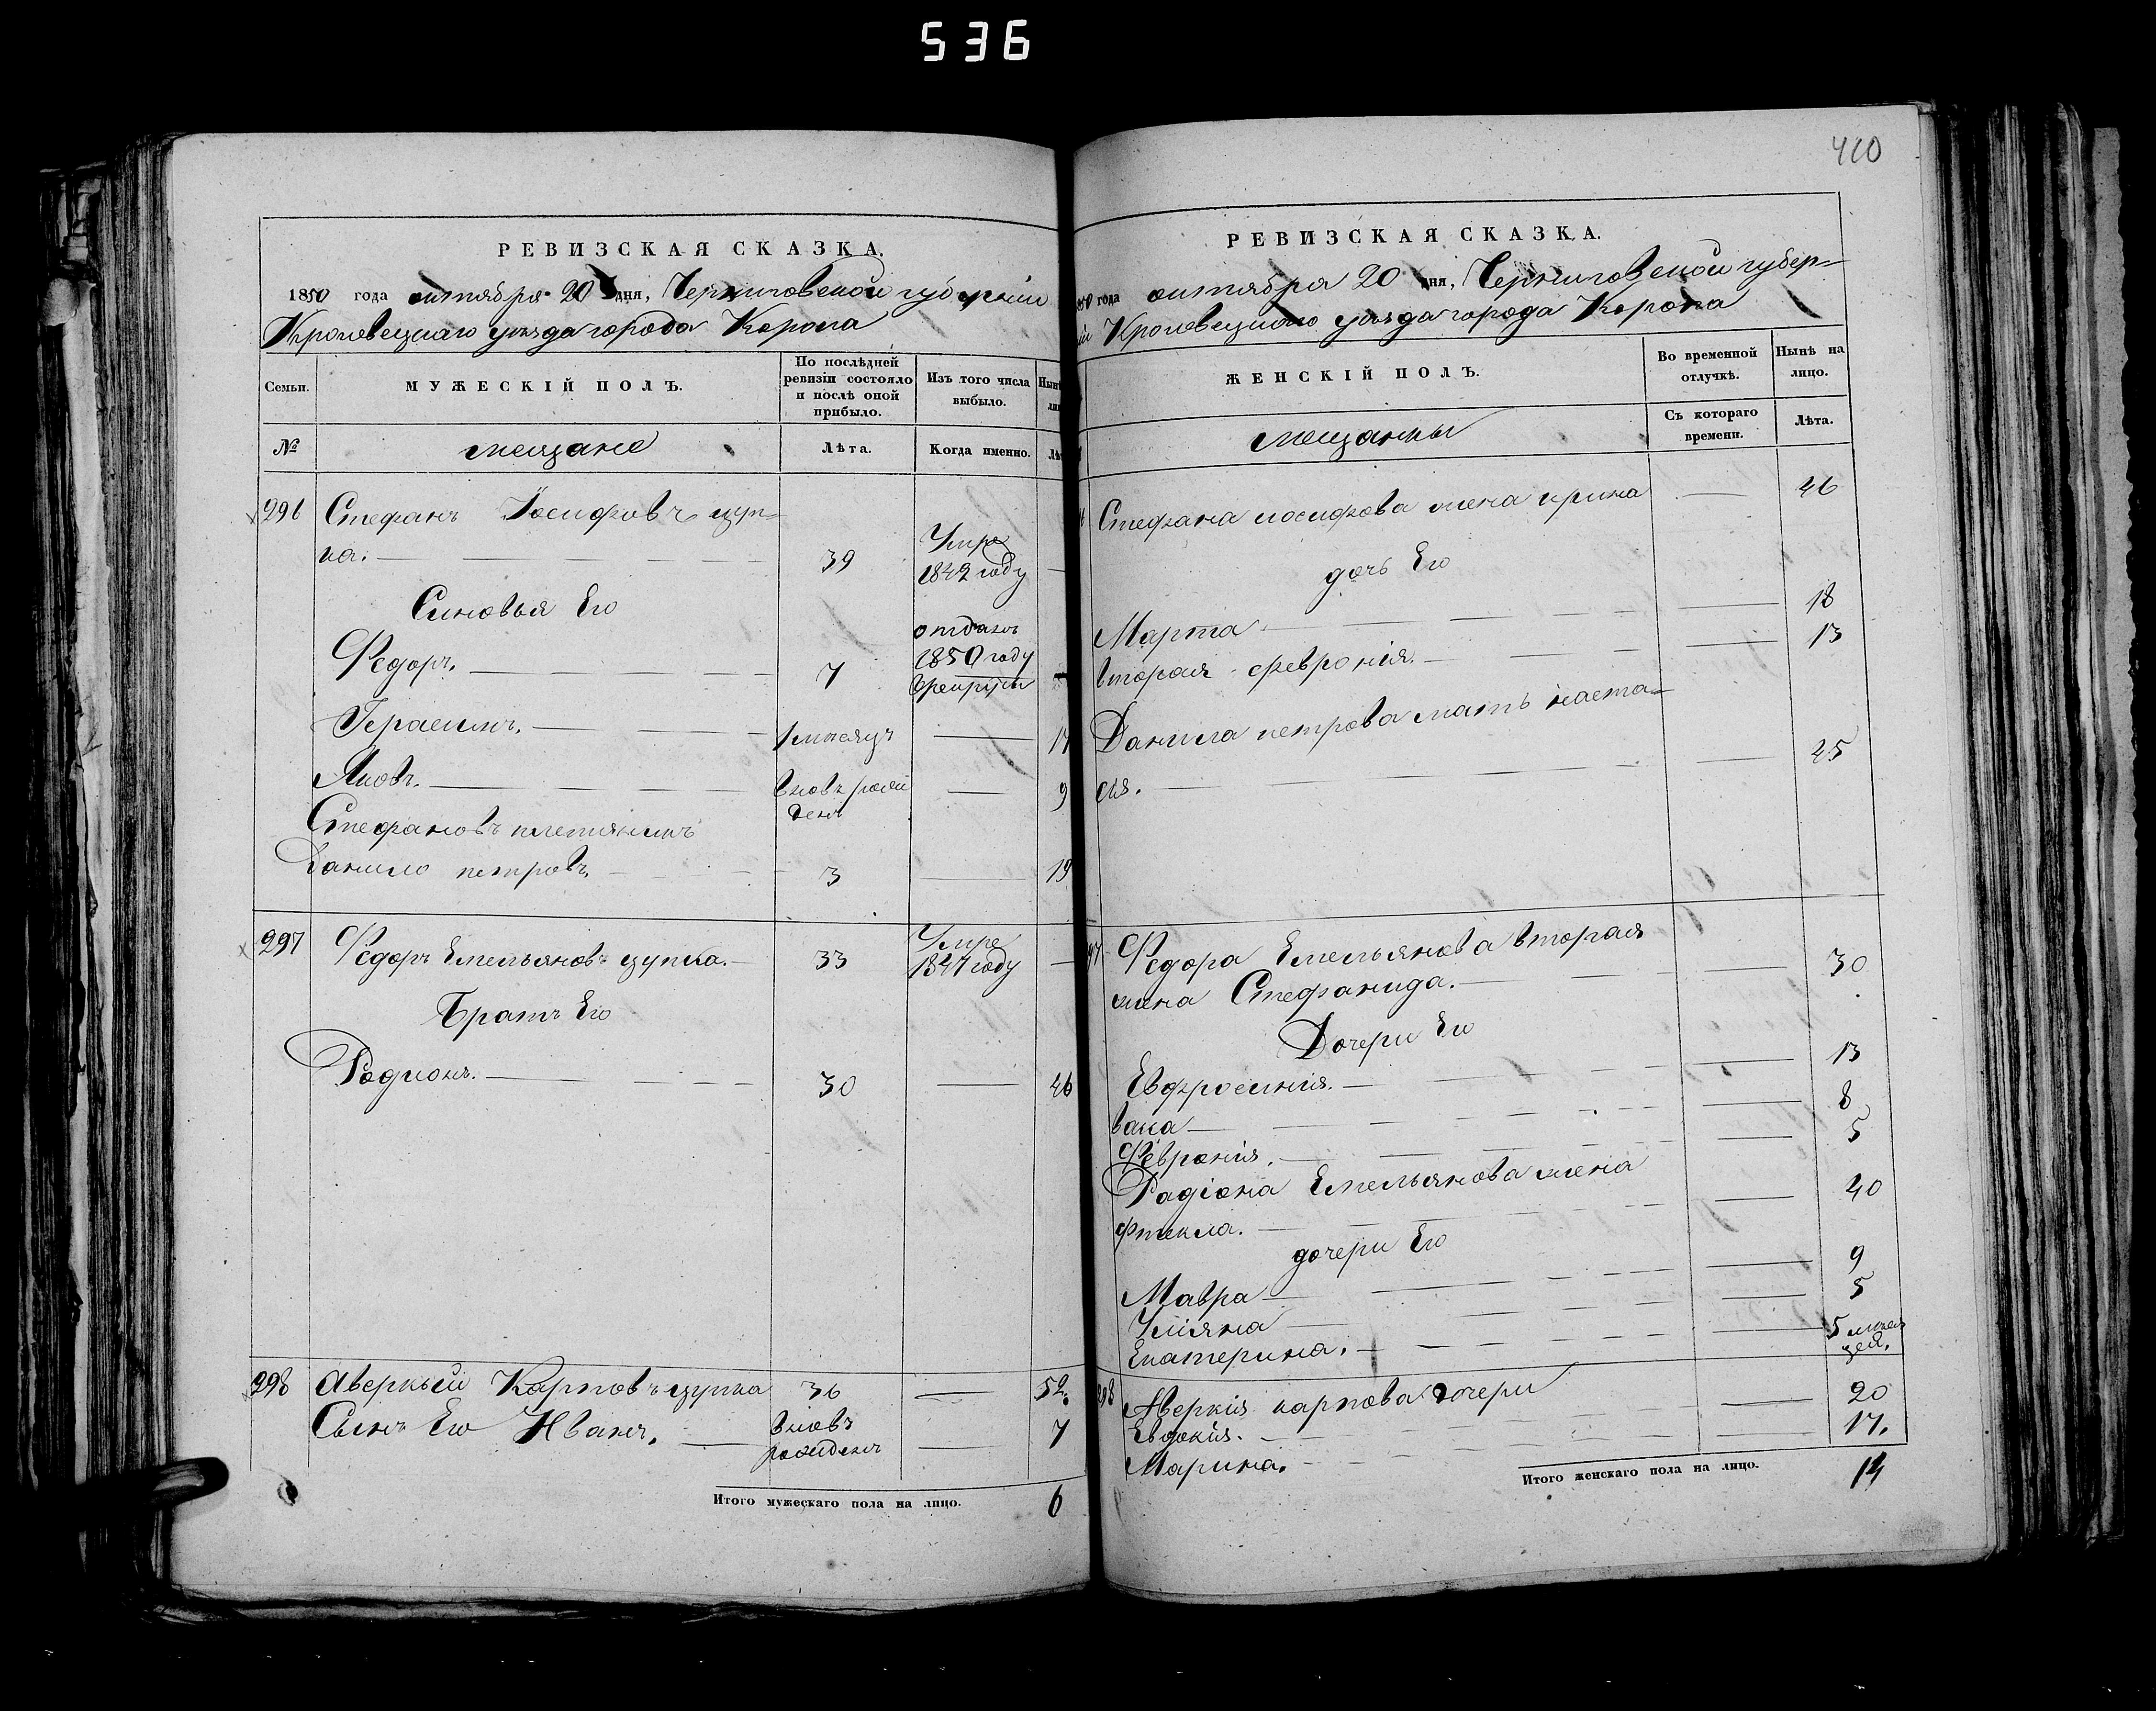 536
РЕВИЗСКАЯ СКАЗКА.
1850 года октября 20 дня, Черниговской губерніи
Кролевецкаго уѣзда города Коропа
Семьи.
МУЖЕСКІЙ ПОЛЪ.
По послѣдней ревизіи состояло и послѣ оной прибыло.
Изъ того числа выбыло.
№
мещане
Лѣта.
Когда именно.
296 Стефанъ Іосифовъ цуп-
ка. 39 Умре 1842 году
Синовья Его
Федоръ. 7 отданъ 1850 году врекруты
Герасимъ. 1 мѣсяцъ
Яковъ. вновь рожденъ 9
Стефановъ племянникъ
Данило петровъ. 3 19
297 Федоръ Емельяновъ цупка. 33 Умре 1847 году
Братъ Его
Радионъ. 30 46
298 Аверкий Карповъ цупка 36 52.
Сынъ Его Иванъ. вновь рожденъ 7
Итого мужескаго пола на лицо. 6
410
РЕВИЗСКАЯ СКАЗКА.
1850 года октября 20 дня, Черниговской губер-
ніи Кролевецкаго уѣзда города Коропа
ЖЕНСКІЙ ПОЛЪ.
Во временной отлучкѣ.
Нынѣ на лицо.
мещанки
Съ котораго времени.
Лѣта.
Стефана иосифова жена ирина 46
дочь Его
Марта 18
вторая феврония. 13
Данила петрова мать наста-
сия. 45
Федора Емельянова вторая
жена Стефанида. 30
Дочери Его
Евфросиния. 13
васа 8
Феврония. 5
Радіона Емельянова жена
фтекла. 40
дочери Его
Мавра 9
Уліяна 5
Екатерина. 5 мѣсяцей.
298 Аверкія карпова дочери
Евдокия. 20
Марина. 17.
Итого женскаго пола на лицо. 14